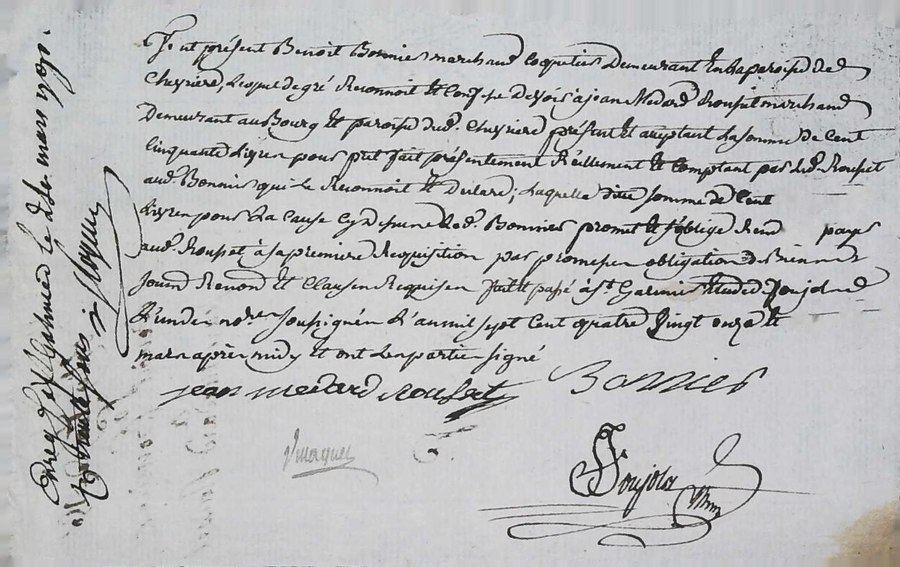 fut présent Benoit Bonnier marchand coquetier demeurant en la paroisse de
Chevriere, lequel de gré Reconnoit et Confesse devoir à jean Medard Roussct marchand
Demeurant au Bourg et paroisse de Chevriere présent et acceptant La somme de Cent
Cinquante Livres pour prêt fait présentement Réellement et Comptant par led. Rousset
aud. Bonnier qui le Reconnoit et Declare; Laquelle ditte somme de Cent
Livres pour La Cause Cy dessus led. Bonnier promet et s'oblige payer
aud. Rousset à sa premiere Requisition par promesses obligation de Biens
Renonc et Clauses Requises fait et passé à St. Galmier Etude de Soujol
L'un des nores soussignés L'an mil sept Cent quatre Vingt onze et
mars après midy et ont Les parties signé
jean medard rousset Bonnier
Soujol
Enreg. à St Galmier le mars 1791.